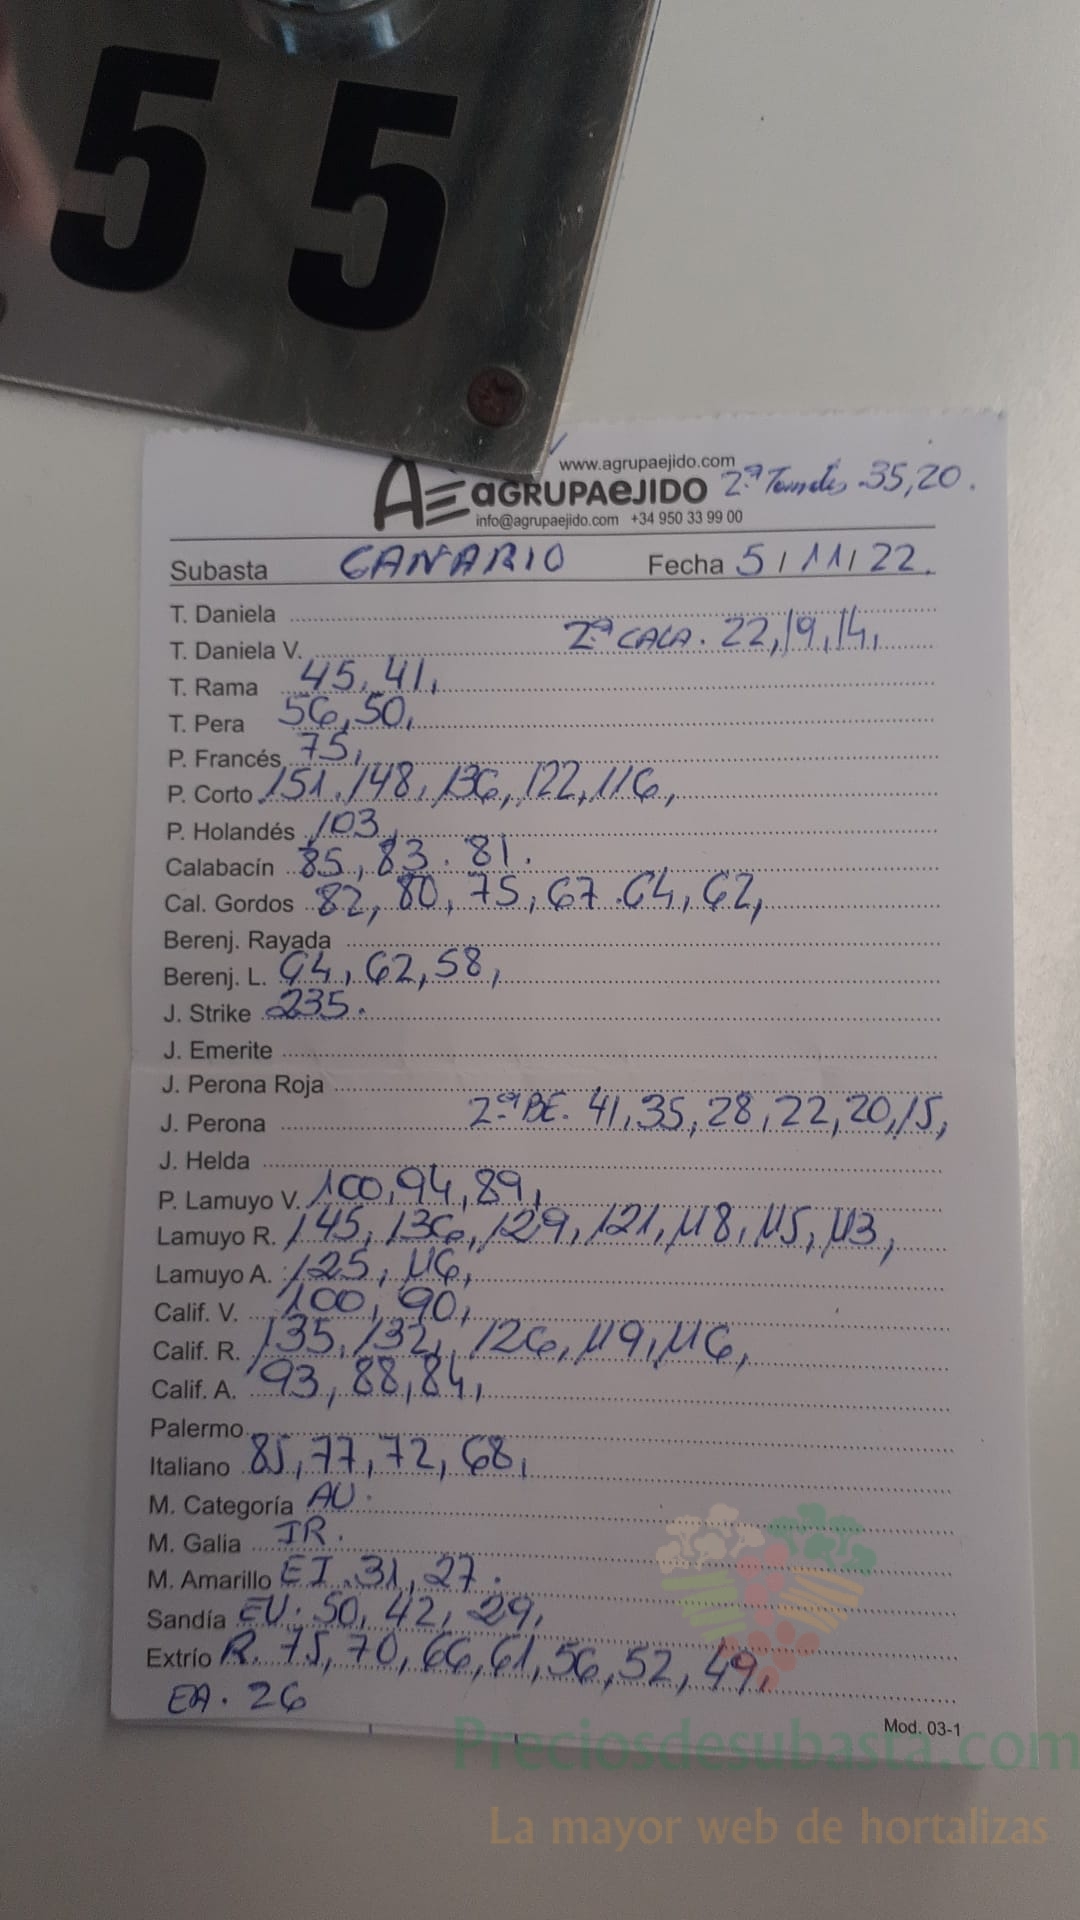 55
www.agrupaejido.com
AGRUPAEJIDO 2ª Tomates 35,20.
info@agrupaejido.com +34 950 33 99 00
Subasta CANARIO Fecha 5/11/22.
T. Daniela
2ª CALA. 22,19,14,
T. Daniela V.
T. Rama 45,41,
T. Pera 56,50,
P. Francés 75,
P. Corto 151,148,136,122,116,
P. Holandés 103,
Calabacín 85,83.81.
Cal. Gordos 82,80,75,67.64,62,
Berenj. Rayada
Berenj. L. 94,62,58,
J. Strike 235.
J. Emerite
J. Perona Roja
J. Perona 2ª BE. 41,35,28,22,20,15,
J. Helda
P. Lamuyo V. 100,94,89,
Lamuyo R. 145,136,129,121,118,115,113,
Lamuyo A. 125,116,
Calif. V. 100,90,
Calif. R. 135,132,126,119,116,
Calif. A. 93,88,84,
Palermo
Italiano 85,77,72,68,
M. Categoría AU.
M. Galia IR.
M. Amarillo EI.31,27.
Sandía EU.50,42,29,
Extrío R.75,70,66,61,56,52,49,
EA.26
Mod. 03-1
Preciosdesubasta.com
La mayor web de hortalizas